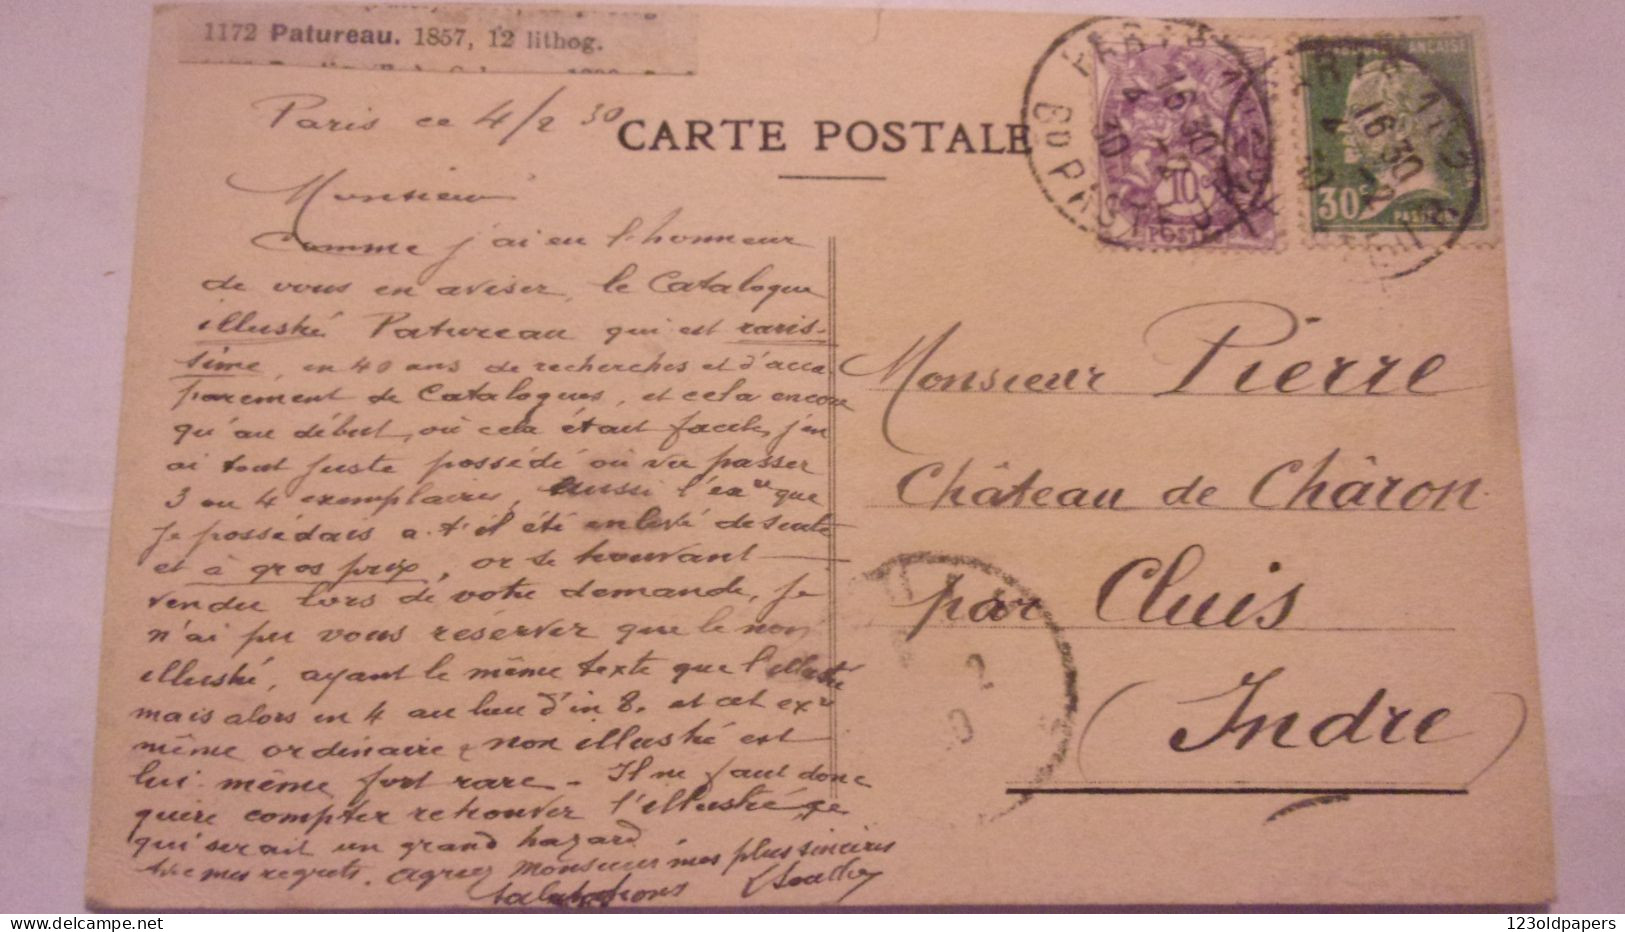 1172 Patureau. 1857, 12 lithog.
Paris ce 4/2 30
CARTE POSTALE
Monsieur
Comme j'ai eu l'honneur
de vous en aviser, le Catalogue
illustré Patureau qui est raris-
sime, en 40 ans de recherches et d'acca
parement de Catalogues, et cela encore
qu'au début, où cela était facile, j'en
ai tout juste possédé ou vu passer
3 ou 4 exemplaires, aussi l'exre que
je possédais a-t'il été enlevé de suite
et à gros prix, or se trouvant
vendu lors de votre demande, je
n'ai pu vous réserver que le non
illustré, ayant le même texte que l'illustré
mais alors in 4 au lieu d'in 8. et cet exre
même ordinaire & non illustré est
lui-même fort rare - Il ne faut donc
guère compter retrouver l'illustré, ce
qui serait un grand hazard
mes regrets. agréez Monsieur mes plus sincères
salutations
10c
POSTES
FRANÇAISE
30c
PASTEUR
16 30
4 2
30
16 30
4
12
PASTEUR
Monsieur Pierre
Château de Châron
par Cluis
(Indre)
2
123oldpapers